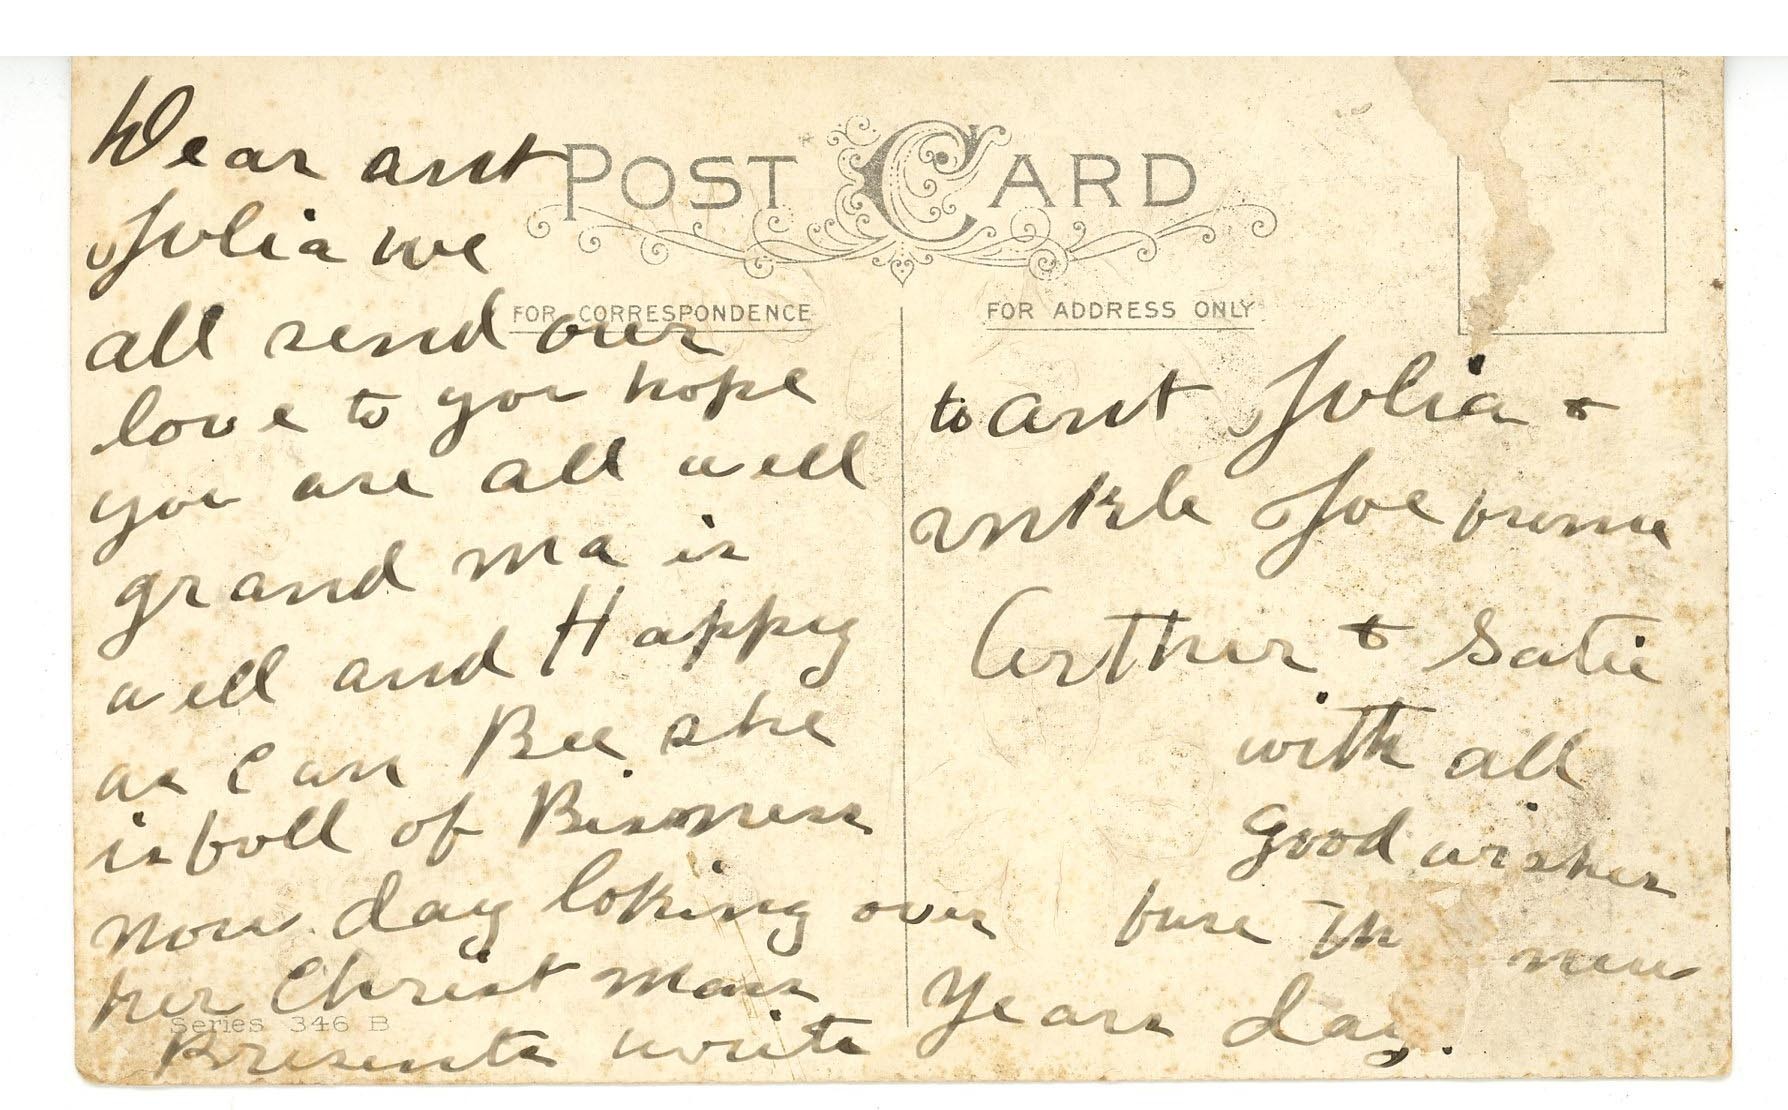 POST CARD
FOR CORRESPONDENCE
FOR ADDRESS ONLY
Dear ant
Julia we
all send ouer
love to you hope
you are all well
grand ma is
well and Happy
as can Bee she
is full of Bisnness
now day loking over
her Christ mass
Presents write
Series 346 B
to ant Julia &
unkle Joe frume
Arther & Satie
with all
good wishes
fure the new
Years day.